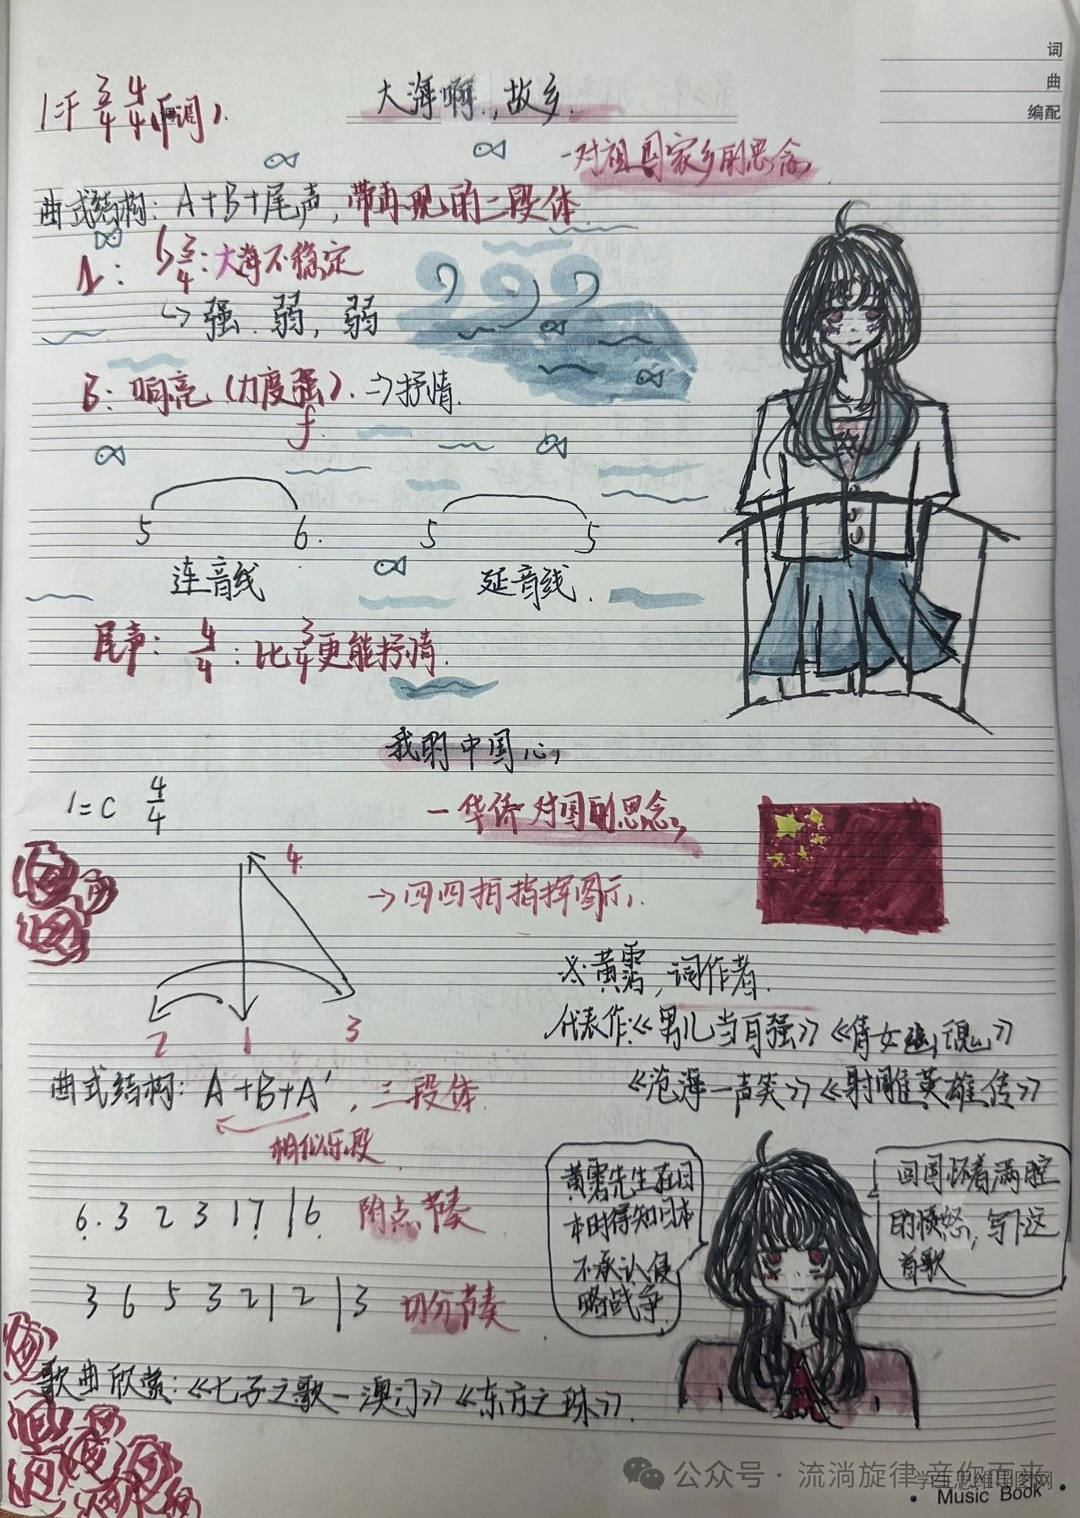 词
曲
编配
大海啊,故乡.
1=F 3/4 4/4 F调).
—对祖国家乡的思念,
曲式结构: A+B+尾声,带再现的二段体
A: 3/4:大海不稳定
↳强.弱,弱
B: 响亮(力度强).⇒抒情.
f
5 6. 5 5
连音线 延音线.
尾声: 4/4:比3/4更能抒情.
我的中国心,
1=C 4/4
—华侨对国的思念,
4
→四四拍指挥图示.
2 1 3
※黄霑,词作者.
代表作:《男儿当自强》《倩女幽魂》
《沧海一声笑》《射雕英雄传》
曲式结构: A+B+A′,三段体.
相似乐段.
6. 3 2 3 1 7 | 6 附点节奏
3 6 5 3 2 1 2 | 3 切分节奏
黄霑先生在日
本时得知日本
不承认侵
略战争.
回国怀着满腔
的愤怒,写下这
首歌
歌曲欣赏:《七子之歌—澳门》《东方之珠》.
公众号·流淌旋律 音你而来
学生思维导图网
Music Book